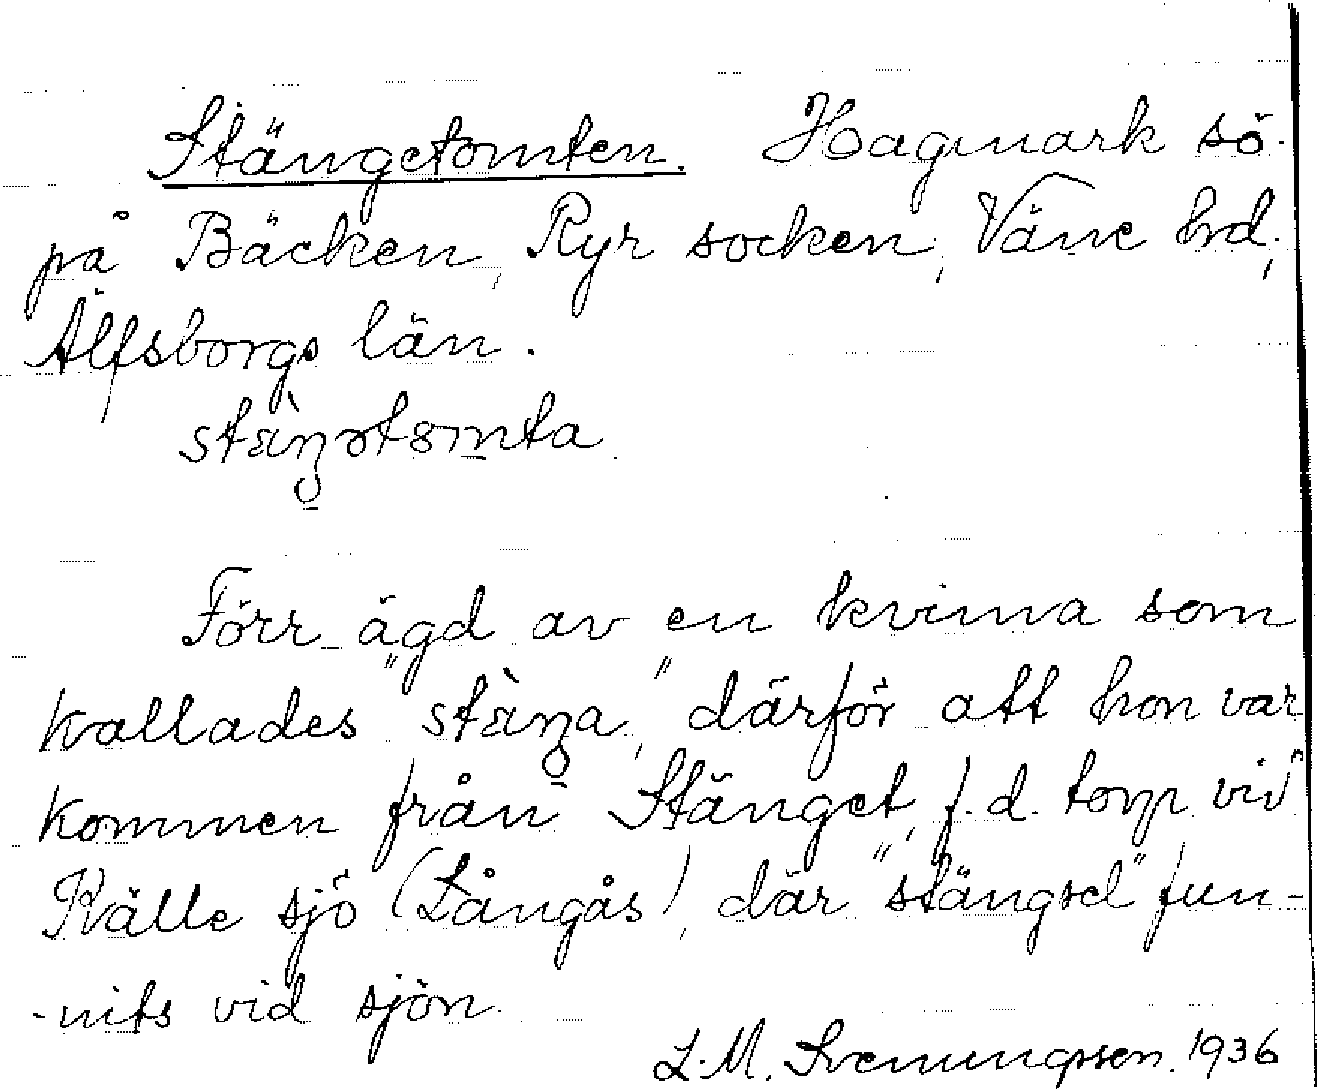 Stängetomten. Hagmark sö.
på Bäcken, Ryr socken, Väne hrd.,
Älfsborgs län.
Förr ägd av en kvinna som
kallades "stàŋa", därför att hon var
kommen från Stänget, f.d. torp vid
Källe sjö (Långås), där "stängsel" fun-
-nits vid sjön.
L.M. Svenungsson. 1936